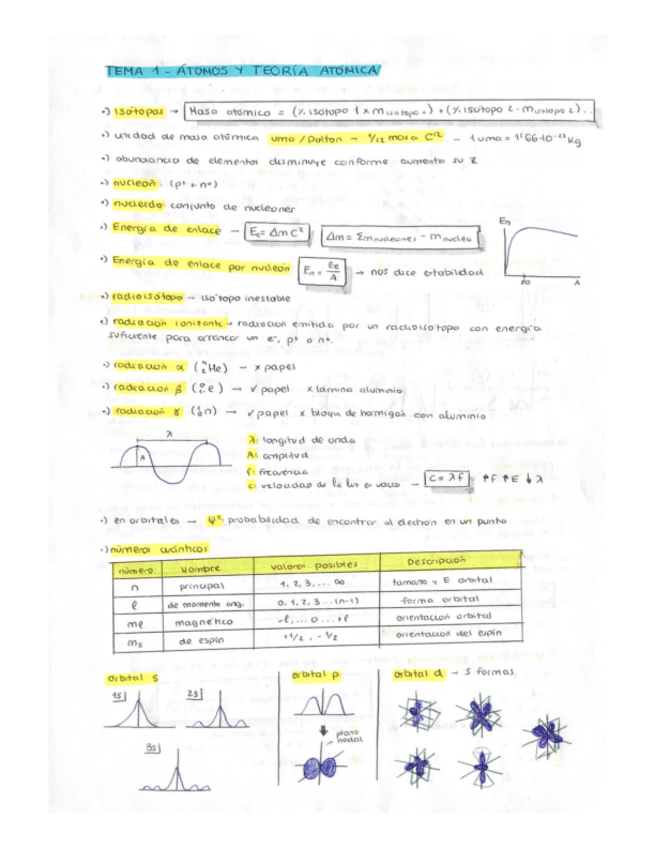 TEMA 1 - ÁTOMOS Y TEORÍA ATÓMICA
·) isótopos → Masa atómica = (% isótopo 1 x m isótopo 1) + (% isótopo 2 · m isótopo 2)...
·) unidad de masa atómica uma / Dalton → 1/12 masa C¹² - 1 uma = 1'66·10⁻²⁷ Kg
·) abundancia de elementos disminuye conforme aumenta su Z
·) nucleón: (p⁺ + n⁰)
·) nucleido: conjunto de nucleones
·) Energía de enlace → Ee = Δm C² Δm = Σm nucleones - m núcleo
·) Energía de enlace por nucleón En = Ee/A → nos dice estabilidad
En
50 A
·) radioisótopo → isótopo inestable
·) radiación ionizante → radiación emitida por un radioisótopo con energía
suficiente para arrancar un e⁻, p⁺ o n⁰.
·) radiación α (⁴₂He) → x papel
·) radiación β (⁰₋₁e) → ✓ papel x lámina aluminio
·) radiación γ (¹₀n) → ✓ papel x bloque de hormigón con aluminio
λ
A
λ: longitud de onda
A: amplitud
f: frecuencia
c: velocidad de la luz en vacío → C = λ f ↑F ↑E ↓λ
·) en orbitales → Ψ² probabilidad de encontrar al electrón en un punto
·) números cuánticos
número Nombre valores posibles Descripción
n principal 1, 2, 3, ... ∞ tamaño y E orbital
l de momento ang. 0, 1, 2, 3 ... (n-1) forma orbital
ml magnético -l, ... 0 ... +l orientación orbital
ms de espín +1/2, -1/2 orientación del espín
orbital s
1s 2s
3s
orbital p
plano
nodal
orbital d → 5 formas